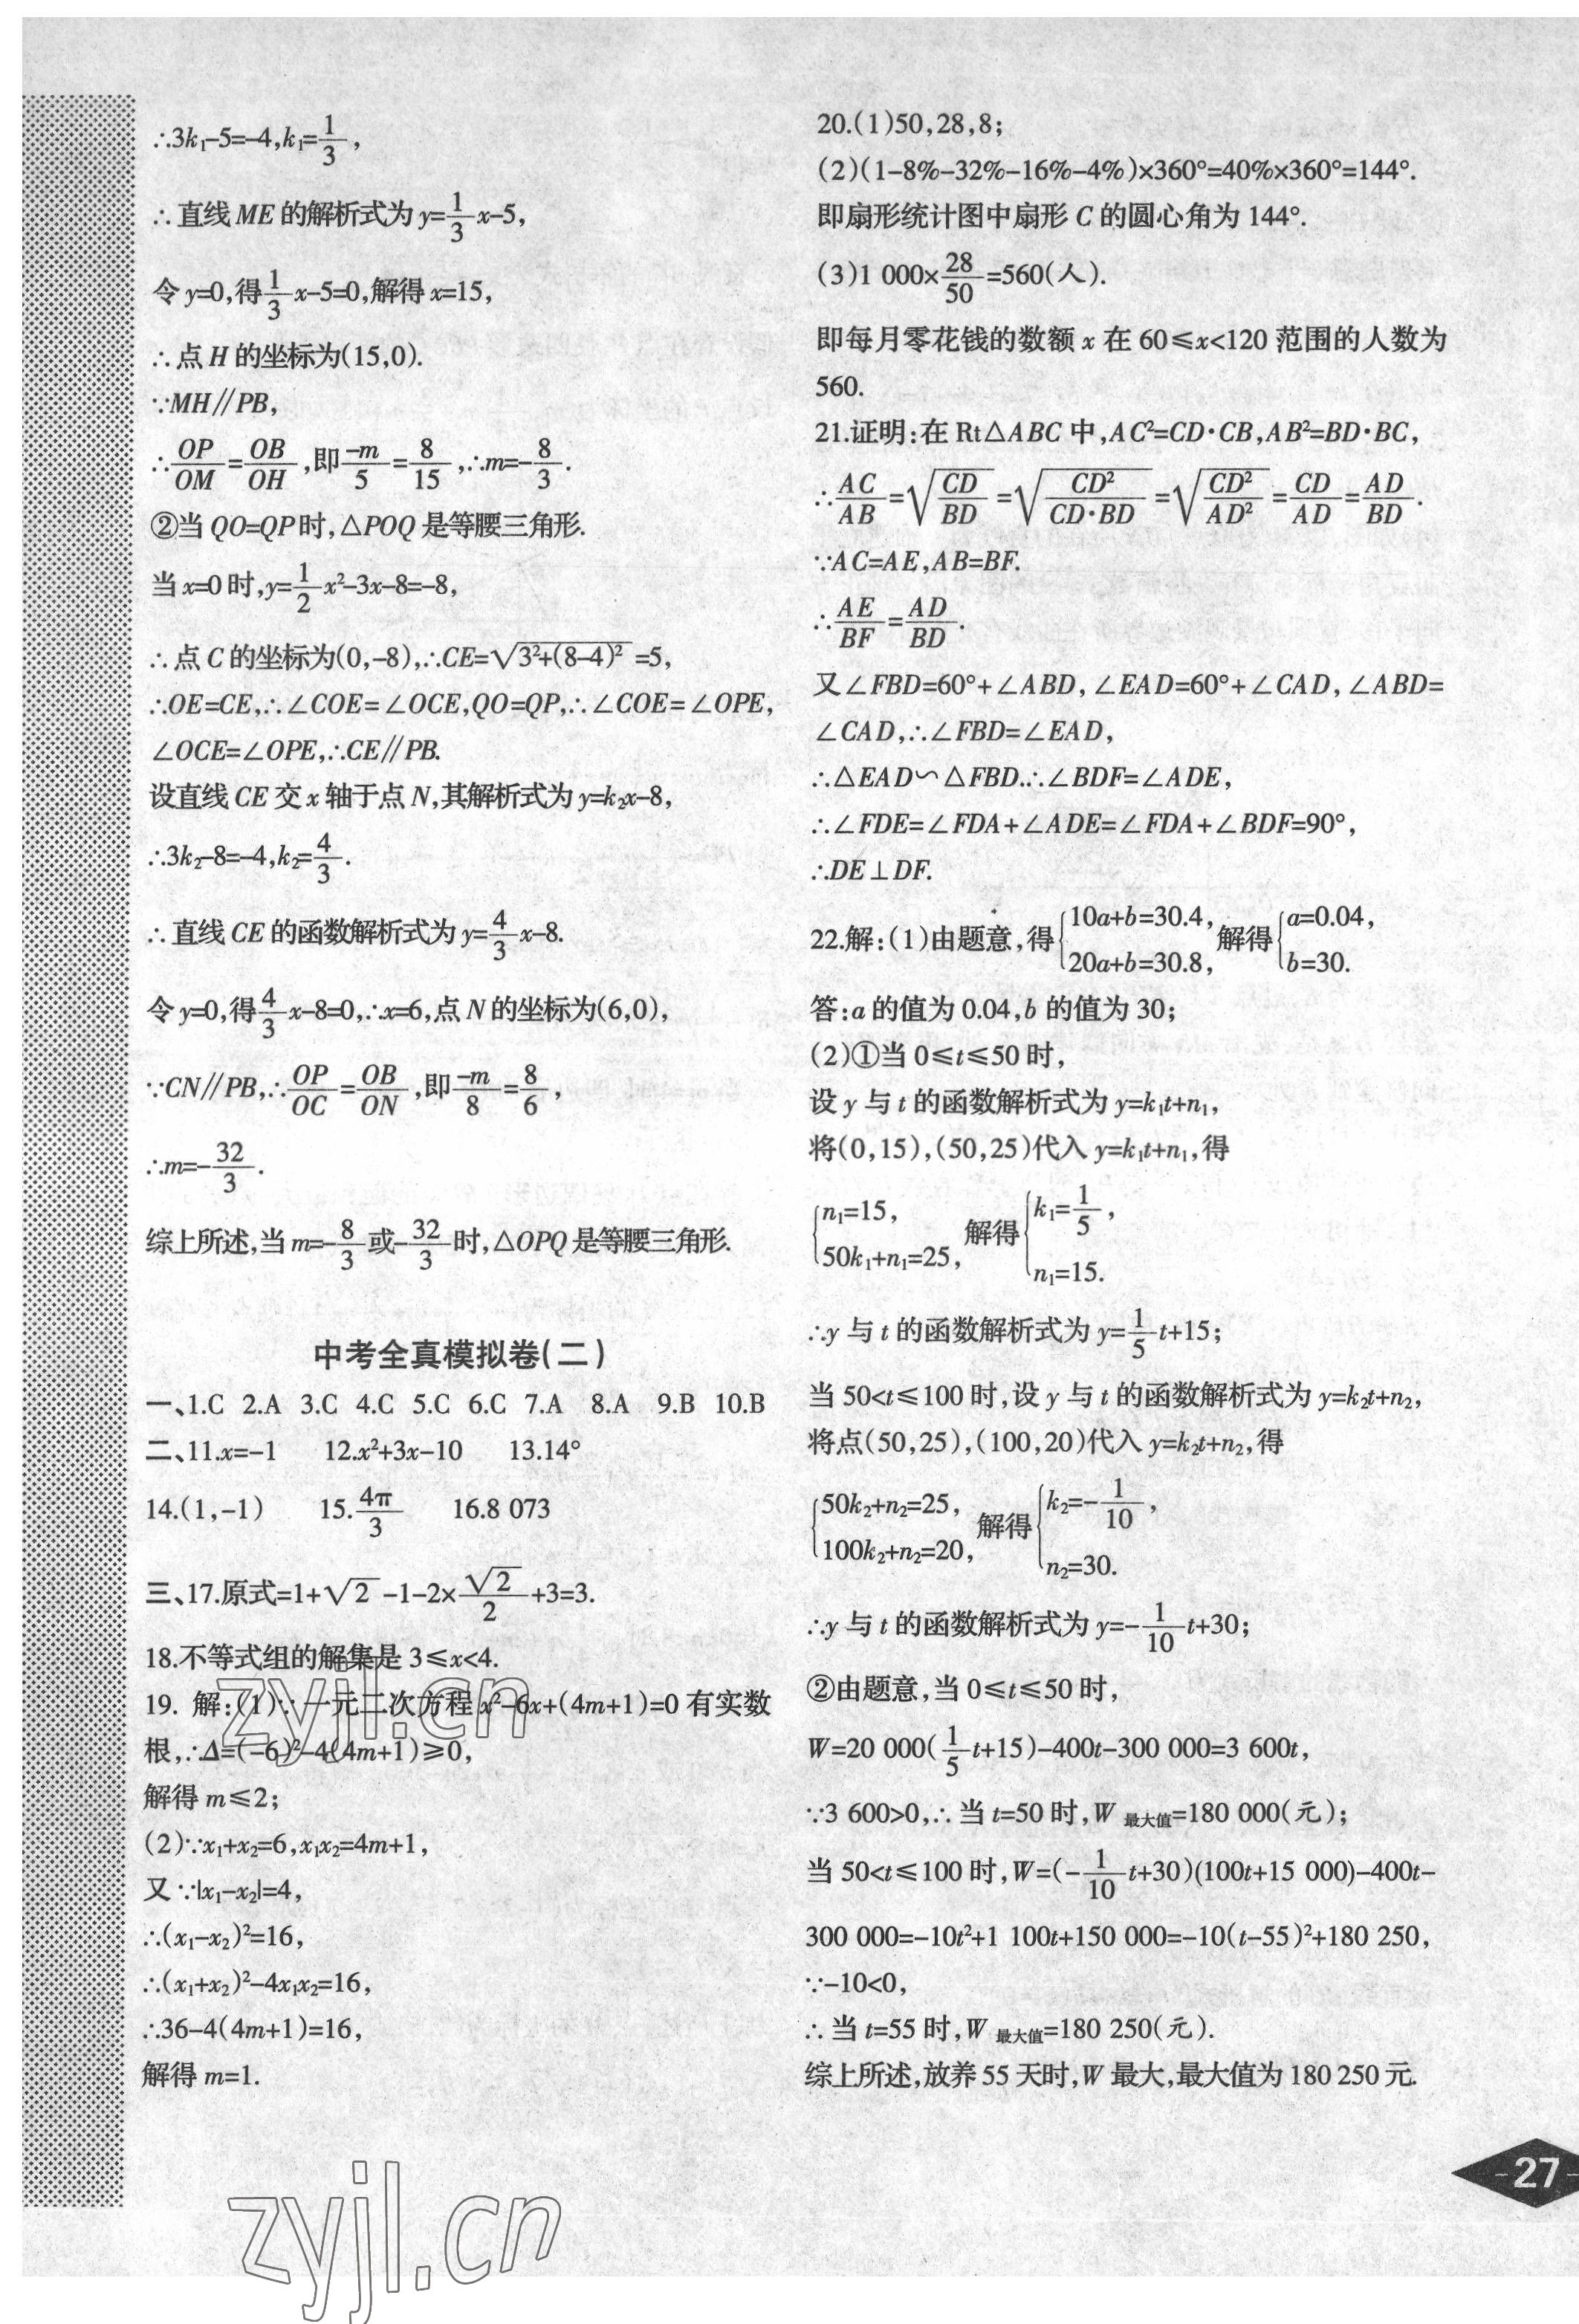 ∴3k₁-5=-4,k₁=1/3,
∴直线ME的解析式为y=1/3x-5,
令y=0,得1/3x-5=0,解得x=15,
∴点H的坐标为(15,0).
∵MH∥PB,
∴OP/OM=OB/OH,即-m/5=8/15,∴m=-8/3.
②当QO=QP时,△POQ是等腰三角形.
当x=0时,y=1/2x²-3x-8=-8,
∴点C的坐标为(0,-8),∴CE=√(3²+(8-4)²)=5,
∴OE=CE,∴∠COE=∠OCE,QO=QP,∴∠COE=∠OPE,
∠OCE=∠OPE,∴CE∥PB.
设直线CE交x轴于点N,其解析式为y=k₂x-8,
∴3k₂-8=-4,k₂=4/3.
∴直线CE的函数解析式为y=4/3x-8.
令y=0,得4/3x-8=0,∴x=6,点N的坐标为(6,0),
∵CN∥PB,∴OP/OC=OB/ON,即-m/8=8/6,
∴m=-32/3.
综上所述,当m=-8/3或-32/3时,△OPQ是等腰三角形.
中考全真模拟卷(二)
一、1.C 2.A 3.C 4.C 5.C 6.C 7.A 8.A 9.B 10.B
二、11.x=-1 12.x²+3x-10 13.14°
14.(1,-1) 15.4π/3 16.8 073
三、17.原式=1+√2-1-2×√2/2+3=3.
18.不等式组的解集是3≤x<4.
19. 解:(1)∵一元二次方程x²-6x+(4m+1)=0有实数
根,∴Δ=(-6)²-4(4m+1)≥0,
解得m≤2;
(2)∵x₁+x₂=6,x₁x₂=4m+1,
又∵|x₁-x₂|=4,
∴(x₁-x₂)²=16,
∴(x₁+x₂)²-4x₁x₂=16,
∴36-4(4m+1)=16,
解得m=1.
20.(1)50,28,8;
(2)(1-8%-32%-16%-4%)×360°=40%×360°=144°.
即扇形统计图中扇形C的圆心角为144°.
(3)1 000×28/50=560(人).
即每月零花钱的数额x在60≤x<120范围的人数为
560.
21.证明:在Rt△ABC中,AC²=CD·CB,AB²=BD·BC,
∴AC/AB=√(CD/BD)=√(CD²/(CD·BD))=√(CD²/AD²)=CD/AD=AD/BD.
∵AC=AE,AB=BF.
∴AE/BF=AD/BD.
又∠FBD=60°+∠ABD,∠EAD=60°+∠CAD,∠ABD=
∠CAD,∴∠FBD=∠EAD,
∴△EAD∽△FBD.∴∠BDF=∠ADE,
∴∠FDE=∠FDA+∠ADE=∠FDA+∠BDF=90°,
∴DE⊥DF.
22.解:(1)由题意,得{10a+b=30.4, 20a+b=30.8,解得{a=0.04, b=30.
答:a的值为0.04,b的值为30;
(2)①当0≤t≤50时,
设y与t的函数解析式为y=k₁t+n₁,
将(0,15),(50,25)代入y=k₁t+n₁,得
{n₁=15, 50k₁+n₁=25,解得{k₁=1/5, n₁=15.
∴y与t的函数解析式为y=1/5t+15;
当50<t≤100时,设y与t的函数解析式为y=k₂t+n₂,
将点(50,25),(100,20)代入y=k₂t+n₂,得
{50k₂+n₂=25, 100k₂+n₂=20,解得{k₂=-1/10, n₂=30.
∴y与t的函数解析式为y=-1/10t+30;
②由题意,当0≤t≤50时,
W=20 000(1/5t+15)-400t-300 000=3 600t,
∵3 600>0,∴当t=50时,W最大值=180 000(元);
当50<t≤100时,W=(-1/10t+30)(100t+15 000)-400t-
300 000=-10t²+1 100t+150 000=-10(t-55)²+180 250,
∵-10<0,
∴当t=55时,W最大值=180 250(元).
综上所述,放养55天时,W最大,最大值为180 250元.
-27-
zyjl.cn
zyjl.cn